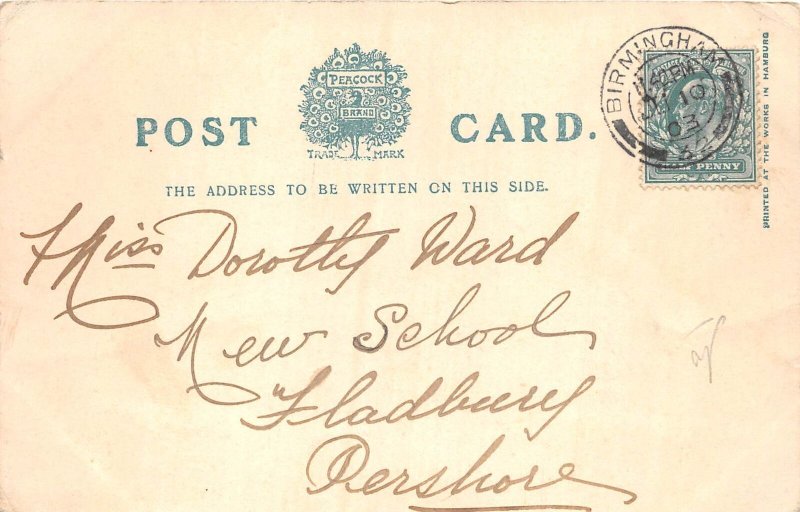 PEACOCK
BRAND
TRADE MARK
POST CARD.
THE ADDRESS TO BE WRITTEN ON THIS SIDE.
BIRMINGHAM
10
03
HALF PENNY
PRINTED AT THE WORKS IN HAMBURG
Miss Dorothy Ward
New School
Fladbury
Pershore